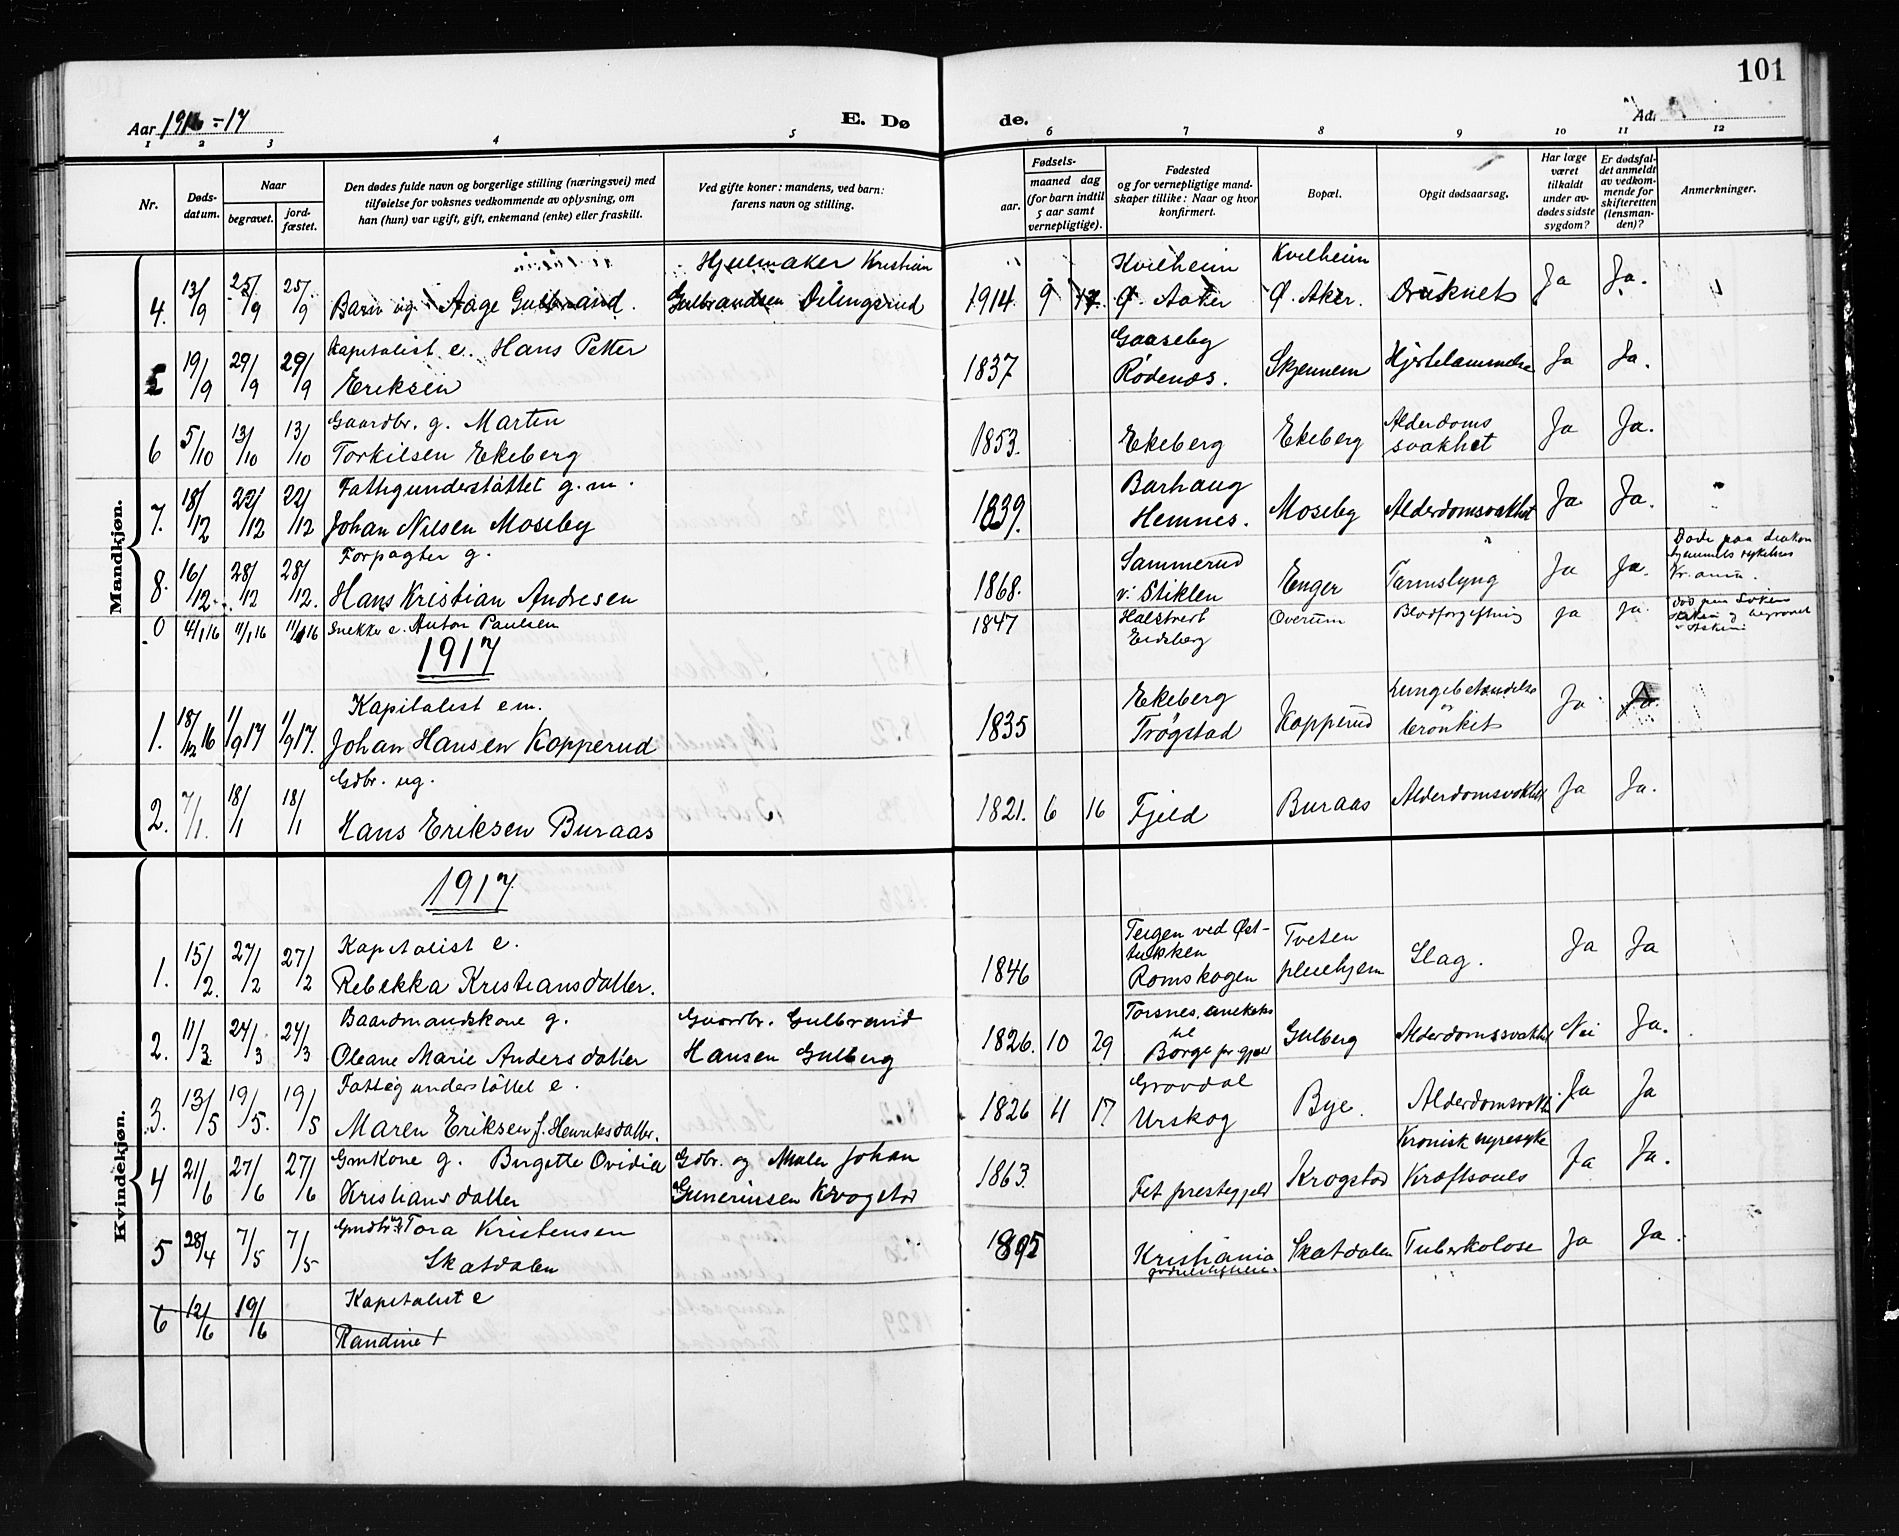 101
Aar 1916-17
E. Dø
de.
Ad.
1 2 3 4 5 6 7 8 9 10 11 12
Nr.
Døds-
datum.
Naar
begravet.
jord-
fæstet.
Den dødes fulde navn og borgerlige stilling (næringsvei) med
tilføielse for voksnes vedkommende av oplysning, om
han (hun) var ugift, gift, enkemand (enke) eller fraskilt.
Ved gifte koner: mandens, ved barn:
farens navn og stilling.
Fødsels-
aar.
maaned dag
(for barn indtil
5 aar samt
vernepligtige).
Fødested
og for vernepligtige mand-
skaper tillike: Naar og hvor
konfirmert.
Bopæl.
Opgit dødsaarsag.
Har læge
været
tilkaldt
under av-
dødes sidste
sygdom?
Er dødsfal-
det anmeldt
av vedkom-
mende for
skifteretten
(lensman-
den)?
Anmerkninger.
Mandkjøn.
Hjulmaker Kristian Kvilheim Kvilheim
4. 13/9 25/9 25/9 Barn ug. Aage Gulbrand. Gulbrandsen Dilingsrud 1914 9 17. Ø. Aaker Ø. Aker. Druknet Ja Ja.
Kapitalist e. Hans Petter Gaaseby
5 19/9 29/9 29/9 Eriksen 1837 Rødenæs. Skjennem Hjertelammelse Ja Ja.
Gaardbr. g. Marten Alderdoms
6 5/10 13/10 13/10 Torkilsen Ekeberg 1853. Ekeberg Ekeberg svakhet Ja Ja.
Fattigunderstøttet g.m. Barhaug
7. 18/12 22/12 22/12 Johan Nilsen Moseby 1839. Hemnes. Moseby Alderdomsvakhet Ja Ja.
Forpagter g. Sammerud Døde paa
8. 16/12 28/12 28/12. Hans Kristian Andresen 1868. v. Stiklen Enger Tarmslyng Ja Ja. Kr.ania.
0 4/1 16 11/1 16 11/1 16 Snekker e. Anton Paulsen 1847 Halstvert Overum Blodforgiftning Ja Ja.
Eidsberg
1917
Kapitalist e.m. Ekeberg Lungebetændelse
1. 18/12 16 1/9 17 1/9 17. Johan Hansen Kopperud 1835 Trøgstad Kopperud bronkit Ja Ja.
Gdbr. ug.
2. 7/1. 18/1 18/1 Hans Eriksen Buraas 1821. 6 16 Fjeld Buraas Alderdomsvakhet Ja Ja.
Kvindekjøn.
1917
Kapitalist e. Teigen ved Øst- Tveten
1. 15/2. 27/2 27/2 Rebekka Kristiansdatter. 1846 Romskogen pleiehjem Slag. Ja Ja
Gaardmandskone g. Gaardbr. Gulbrand Torsnes, anekskr til
2. 11/3 24/3 24/3 Oleane Marie Andersdatter Hansen Gulberg 1826. 10 29 Borge pr.gjeld Gulberg Alderdomssvakhet Nei Ja.
Fattigunderstøttet e. Grovdal
3. 13/5 19/5. 19/5 Maren Eriksen f. Henriksdatter. 1826 4 17 Urskog Bye. Alderdomsvakh. Ja Ja
Gmkone g. Birgitte Ovidia Gdbr. og Maler Johan Kronisk nyresyke
4 21/6 27/6 27/6 Kristiansdatter Guneriussen Krogstad 1863. Fet prestegjeld Krogstad Kræftsaves Ja Ja.
Gmdbr. Tora Kristensen
5 28/4 7/5 7/5 Skatdalen 1895 Kristiania Skatdalen Tuberkolose Ja Ja.
Kapitalist e
6 12/6 19/6 Randine